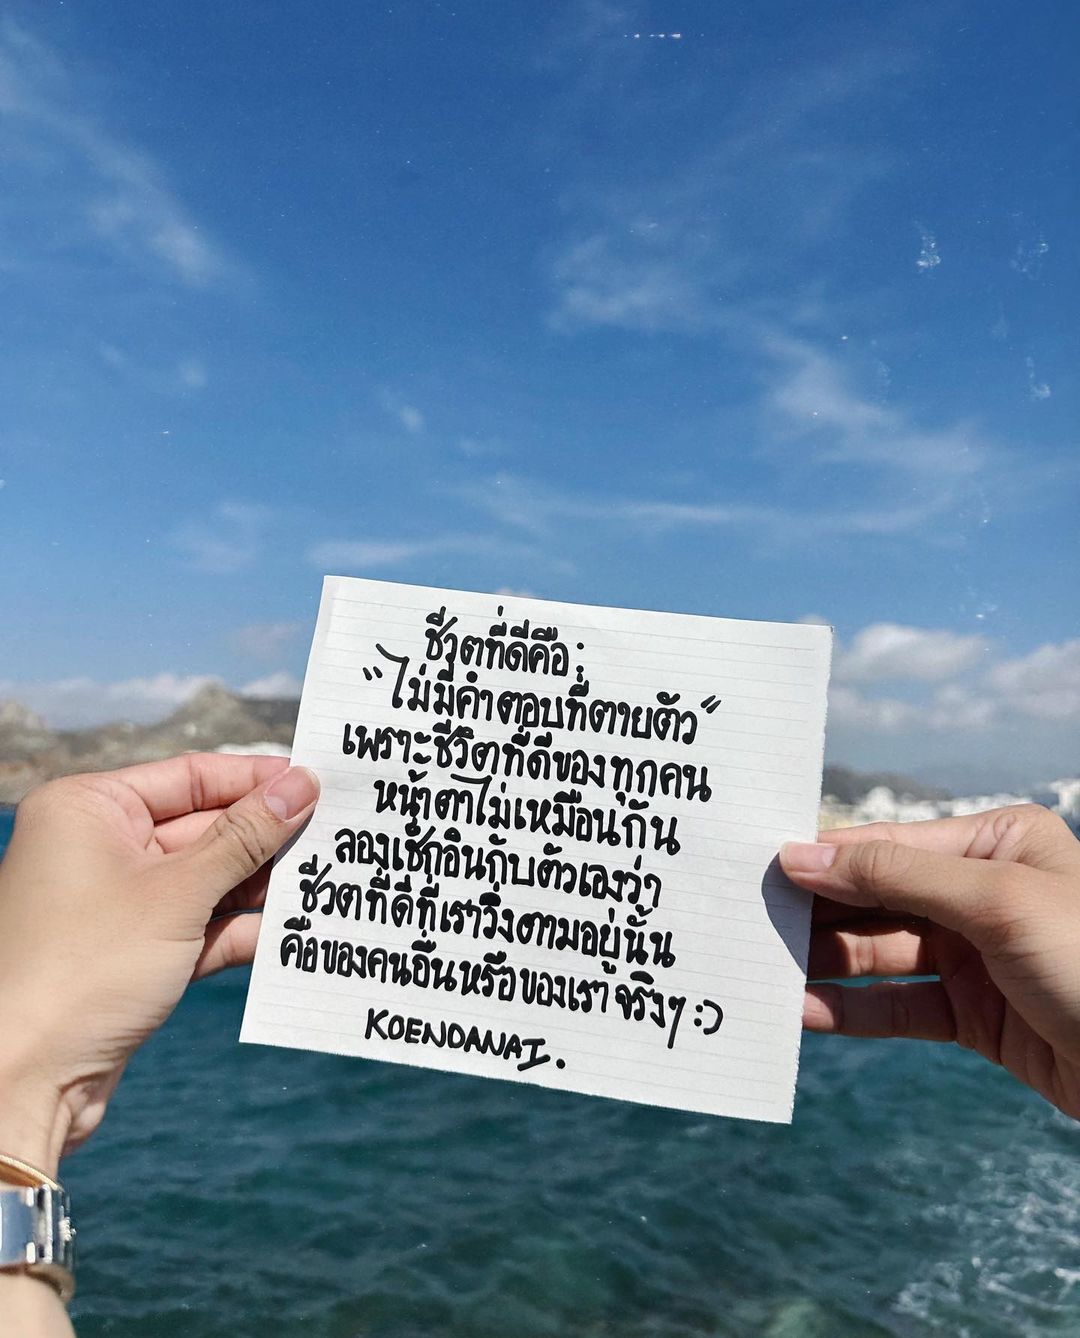 ชีวิตที่ดีคือ:
"ไม่มีคำตอบที่ตายตัว"
เพราะชีวิตที่ดีของทุกคน
หน้าตาไม่เหมือนกัน
ลองเช็กอินกับตัวเองว่า
ชีวิตที่ดีที่เราวิ่งตามอยู่นั้น
คือของคนอื่นหรือของเราจริงๆ :)
KOENDANAI.